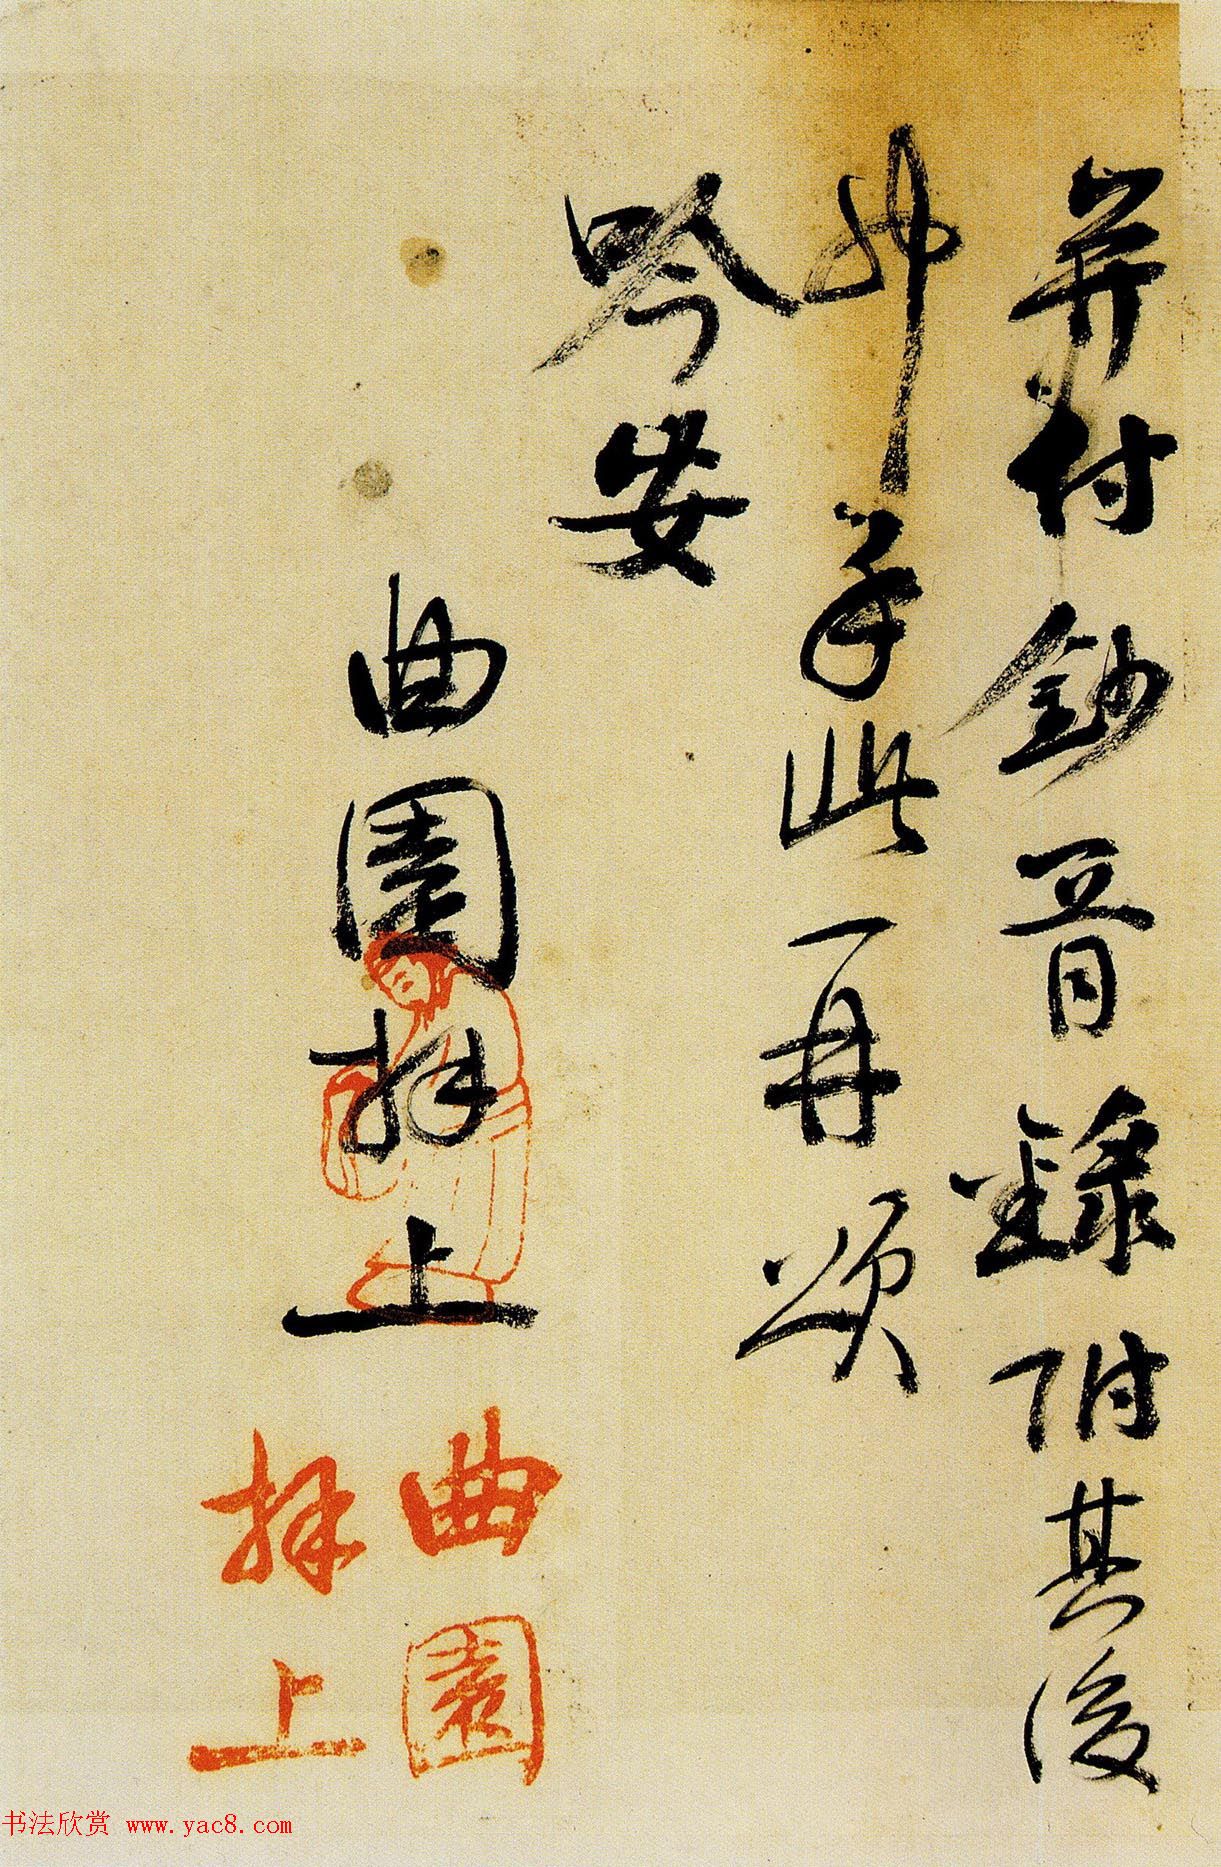 并付鈔胥錄附其後
手此再頌
吟安
曲園拜上
曲園
拜上
书法欣赏 www.yac8.com